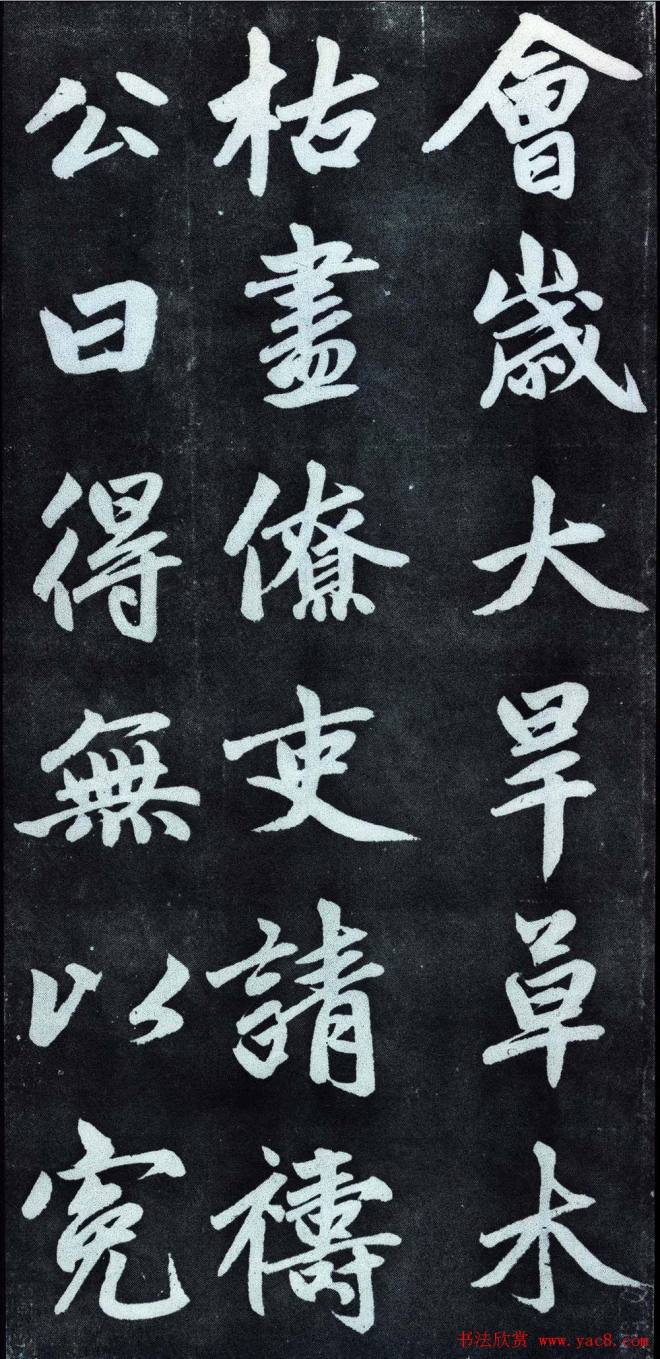 會歲大旱草木
枯盡僚吏請禱
公曰得無以寃
书法欣赏 www.yac8.com